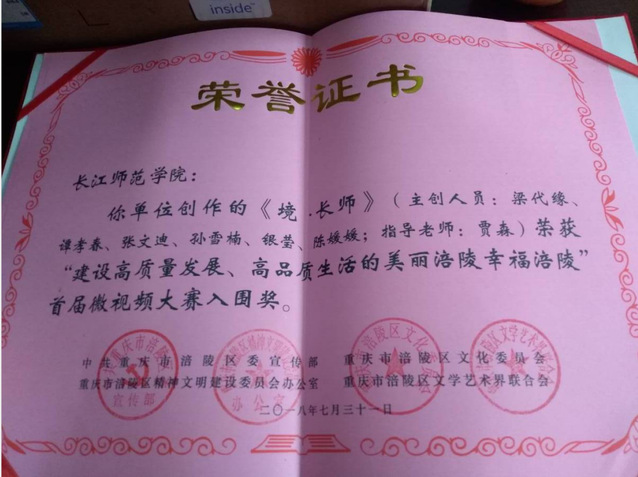 inside™
荣誉证书
长江师范学院：
你单位创作的《境..长师》（主创人员：梁代缘、
谭孝春、张文迪、孙雪楠、银莹、陈媛媛；指导老师：贾森）荣获
“建设高质量发展、高品质生活的美丽涪陵幸福涪陵”
首届微视频大赛入围奖。
中共重庆市涪陵区委宣传部 重庆市涪陵区文化委员会
重庆市涪陵区精神文明建设委员会办公室 重庆市涪陵区文学艺术界联合会
宣传部
办公室
二〇一八年七月三十一日